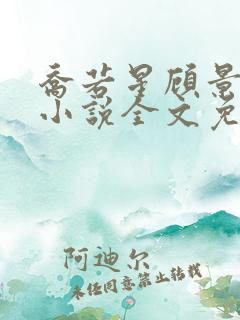 乔若星顾景
小说全文免
阿迪尔
未经同意禁止转载